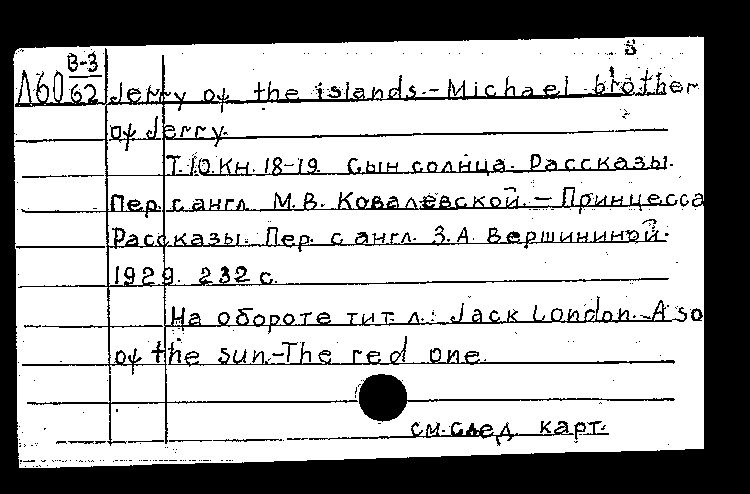 В-3 в
Л60 62 Jerry of the islands.-Michael brother
of Jerry.
Т.10.Кн.18-19 Сын солнца. Рассказы.
Пер. с англ. М.В. Ковалевской. - Принцесса
Рассказы. Пер. с англ. З.А. Вершининой.
1929. 232 с.
На обороте тит. л.: Jack London. A so
of the sun.-The red one.
см.след. карт.